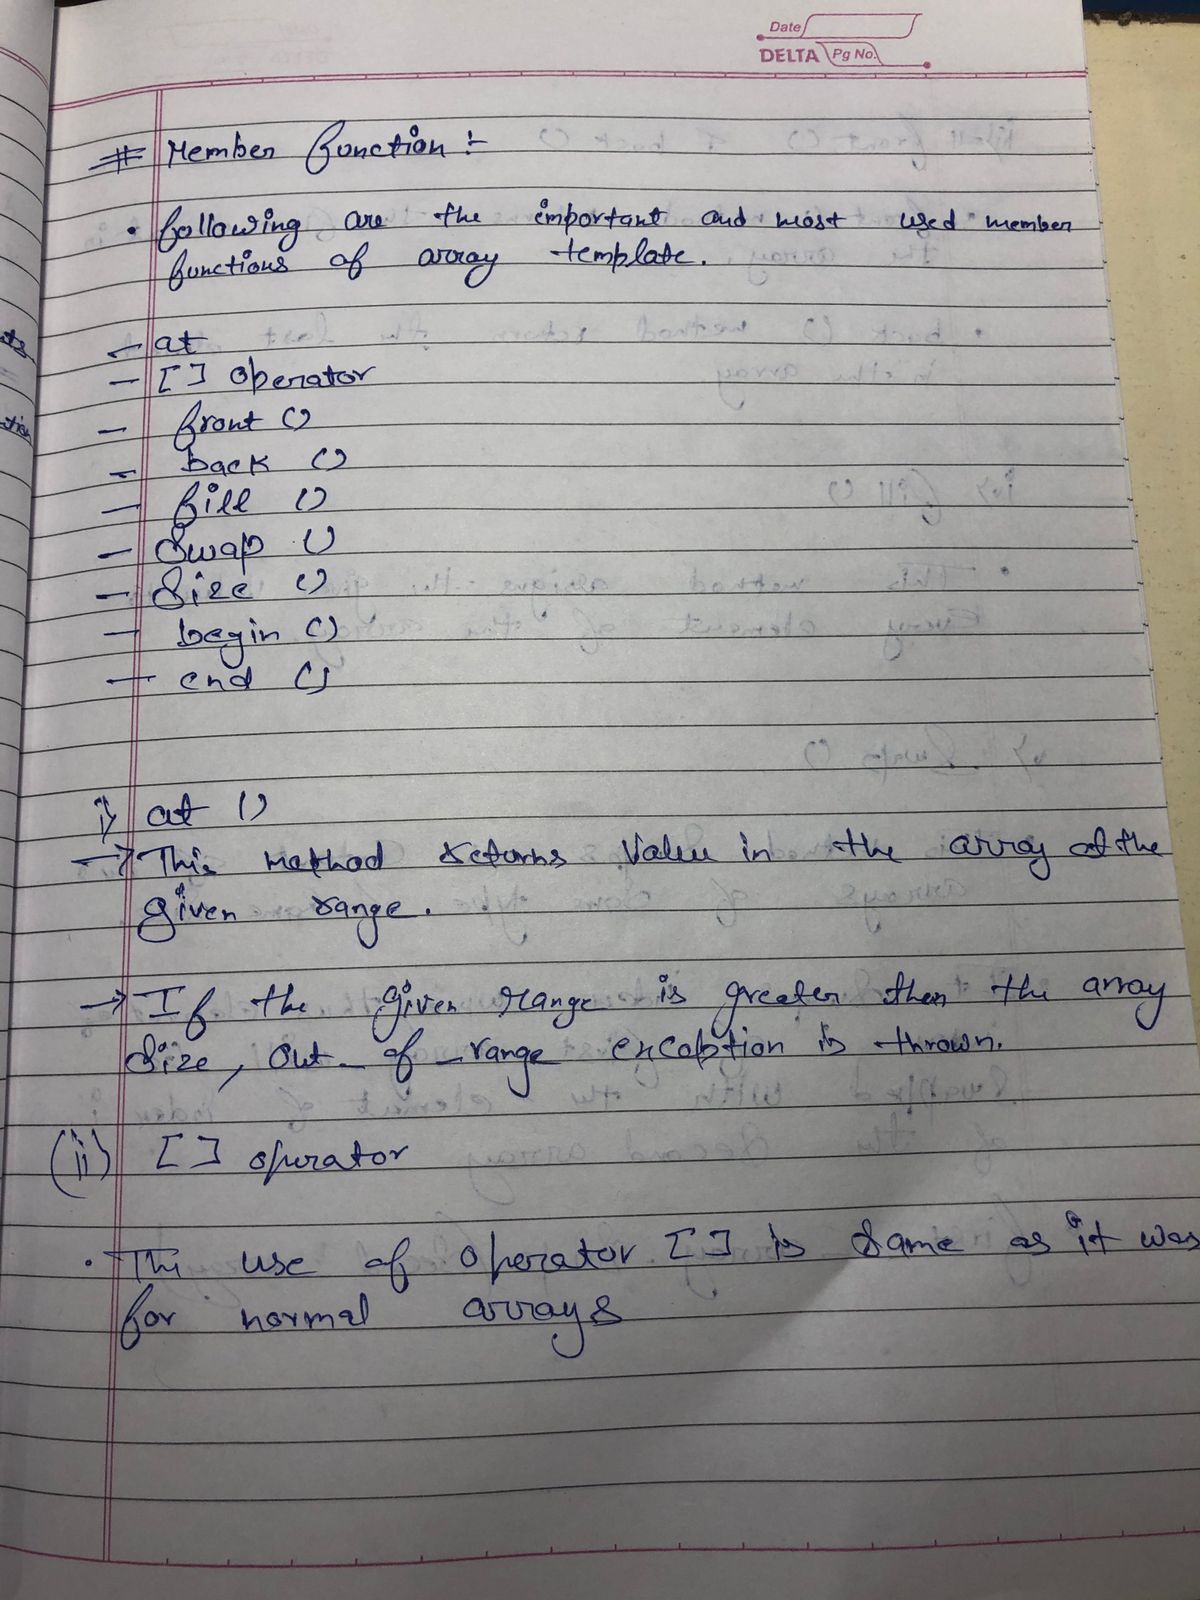 Date
DELTA Pg No.
# Member function :-
• following are the important and most used member
functions of array template.
- at
- [ ] operator
- front ()
- back ()
- fill ()
- Swap ()
- Size ()
- begin ()
- end ()
i) at ()
→ This method returns Value in the array at the
given range.
→ If the given range is greater then the array
Size, out_of_range exception is thrown.
(ii) [ ] operator
• The use of operator [ ] is same as it was
for normal arrays